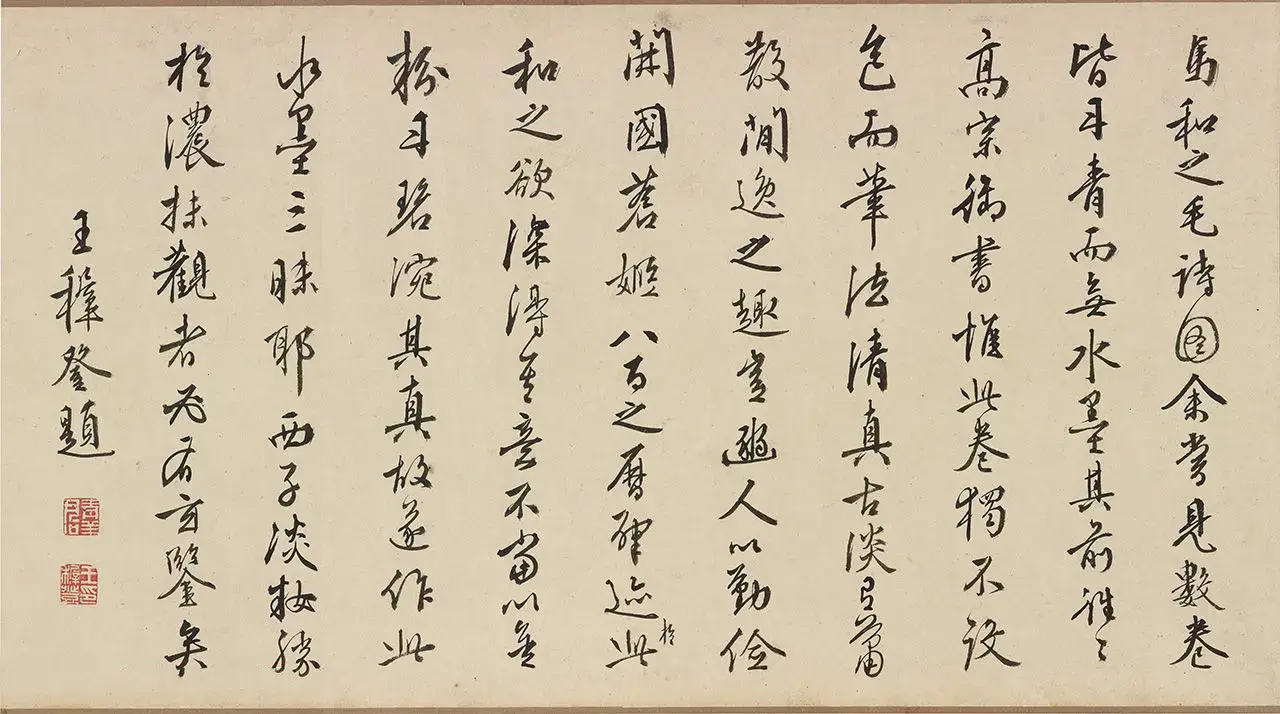 馬和之毛詩圖余嘗見數卷
皆丹青而無水墨其前往〻
高宗御書惟此卷獨不設
色而筆法清真古淡蕭
散閒逸之趣豈豳人以勤儉
開國蒼姬八百之曆肇跡於此
和之欲深得其意不當以金
粉丹碧浼其真故遂作此
水墨三昧耶西子淡妝勝
於濃抹觀者必有玄鑒矣
王穉登題
王印穉登